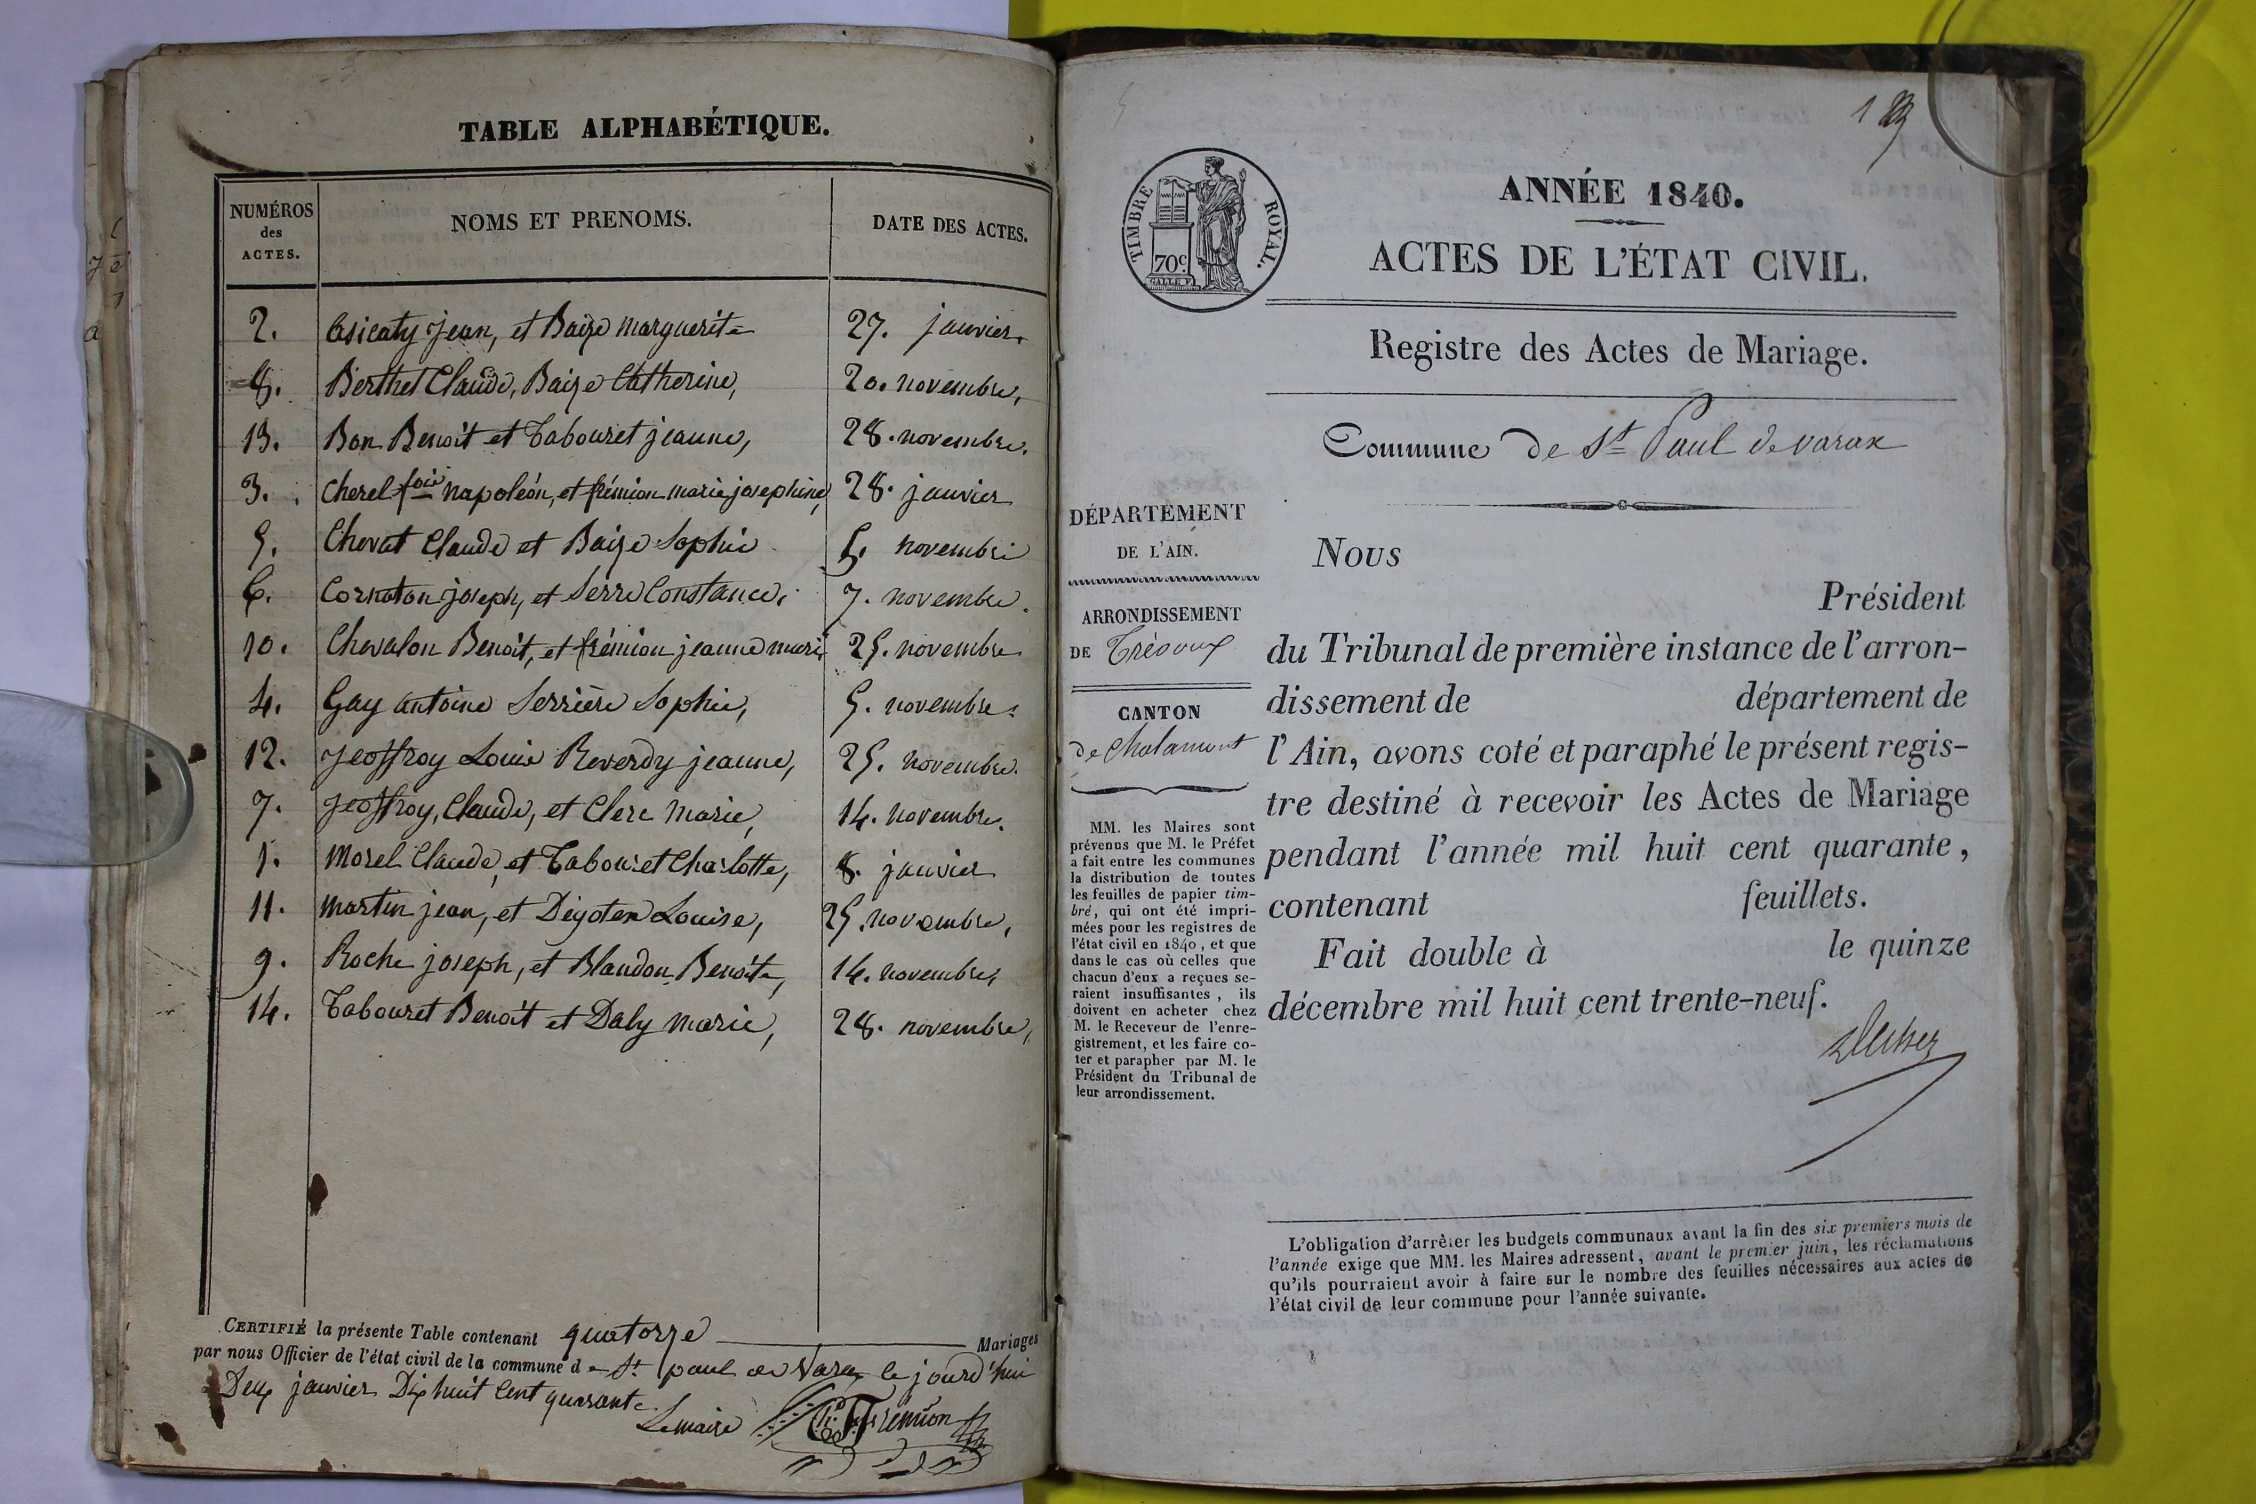 TABLE ALPHABÉTIQUE.
NUMÉROS des ACTES. NOMS ET PRENOMS. DATE DES ACTES.
2. jean, et Baize marguerite 27. janvier.
8. Berthet Claude, Baize Catherine, 20. novembre,
13. Bon Benoit et Tabouret jeanne, 28. novembre.
3. Cherel napoléon, et frémion marie josephine, 28. janvier
5. Chevat Claude et Baize Sophie 5. novembre
6. Cornaton joseph, et Serre Constance, 7. novembre.
10. Chevalon Benoit, et frémion jeanne marie 25. novembre
4. Gay antoine Serrière Sophie, 5. novembre.
12. jeoffroy Louis Reverdy jeanne, 25. novembre.
7. jeoffroy, Claude, et Clerc marie, 14. novembre.
1. morel Claude, et Tabouret Charlotte, 8. janvier
11. martin jean, et Digoten Louise, 25. novembre,
9. Roche joseph, et Blandon Benoite, 14. novembre,
14. Tabouret Benoit et Daly marie, 28. novembre,
CERTIFIÉ la présente Table contenant quatorze Mariages
par nous Officier de l'état civil de la commune de St. paul de Varax le jourd'hui
Deux janvier Dix huit Cent quarante.
Le maire Fremion
ANNÉE 1840.
ACTES DE L'ÉTAT CIVIL.
TIMBRE ROYAL.
70c
Registre des Actes de Mariage.
Commune de St Paul de varax
DÉPARTEMENT
DE L'AIN.
ARRONDISSEMENT
DE Trévoux
CANTON
de Chalamont
MM. les Maires sont
prévenus que M. le Préfet
a fait entre les communes
la distribution de toutes
les feuilles de papier tim-
bré, qui ont été impri-
mées pour les registres de
l'état civil en 1840, et que
dans le cas où celles que
chacun d'eux a reçues se-
raient insuffisantes, ils
doivent en acheter chez
M. le Receveur de l'enre-
gistrement, et les faire co-
ter et parapher par M. le
Président du Tribunal de
leur arrondissement.
Nous
Président
du Tribunal de première instance de l'arron-
dissement de département de
l'Ain, avons coté et paraphé le présent regis-
tre destiné à recevoir les Actes de Mariage
pendant l'année mil huit cent quarante,
contenant feuillets.
Fait double à le quinze
décembre mil huit cent trente-neuf.
L'obligation d'arrêter les budgets communaux avant la fin des six premiers mois de
l'année exige que MM. les Maires adressent, avant le premier juin, les réclamations
qu'ils pourraient avoir à faire sur le nombre des feuilles nécessaires aux actes de
l'état civil de leur commune pour l'année suivante.